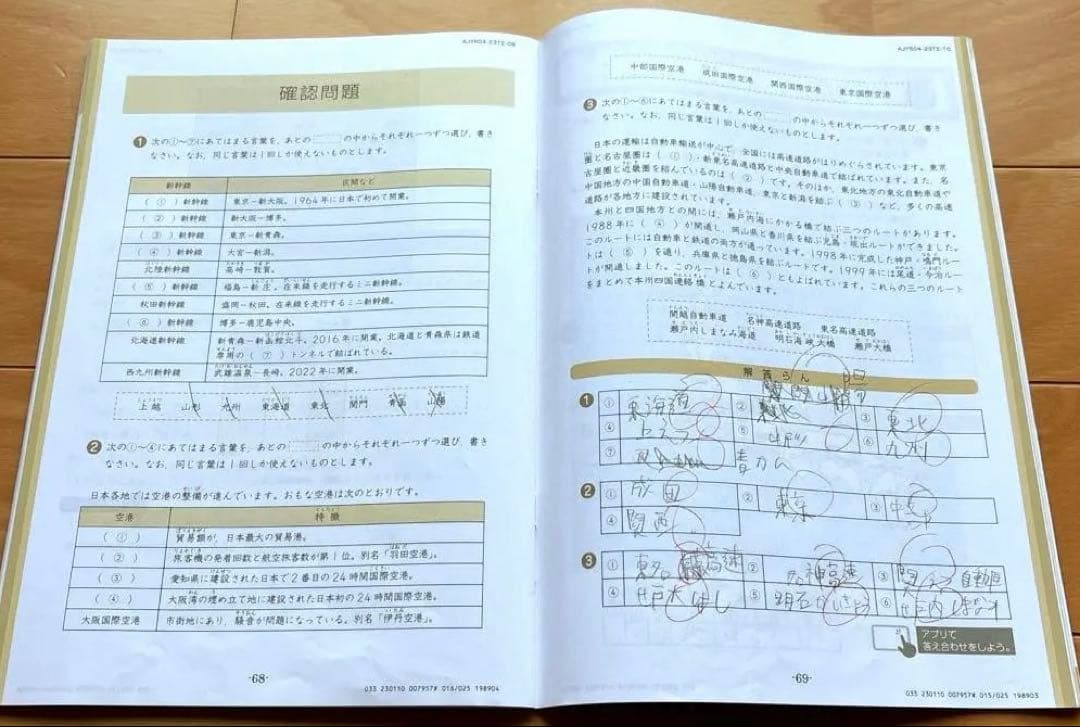 AJYR04-23T2-09
確認問題
1 次の①〜⑦にあてはまる言葉を、あとの の中からそれぞれ一つずつ選び、書き
なさい。なお、同じ言葉は1回しか使えないものとします。
新幹線 区間など
( ① )新幹線 東京－新大阪。1964年に日本で初めて開業。
( ② )新幹線 新大阪－博多。
( ③ )新幹線 東京－新青森。
( ④ )新幹線 大宮－新潟。
北陸新幹線 高崎－敦賀。
( ⑤ )新幹線 福島－新庄。在来線を走行するミニ新幹線。
秋田新幹線 盛岡－秋田。在来線を走行するミニ新幹線。
( ⑥ )新幹線 博多－鹿児島中央。
北海道新幹線 新青森－新函館北斗。2016年に開業。北海道と青森県は鉄道
専用の( ⑦ )トンネルで結ばれている。
西九州新幹線 武雄温泉－長崎。2022年に開業。
上越 山形 九州 東海道 東北 関門 青函 山陽
2 次の①〜④にあてはまる言葉を、あとの の中からそれぞれ一つずつ選び、書き
なさい。なお、同じ言葉は1回しか使えないものとします。
日本各地では空港の整備が進んでいます。おもな空港は次のとおりです。
空港 特徴
( ① ) 貿易額が、日本最大の貿易港。
( ② ) 旅客機の発着回数と航空旅客数が第1位。別名「羽田空港」。
( ③ ) 愛知県に建設された日本で2番目の24時間国際空港。
( ④ ) 大阪湾の埋め立て地に建設された日本初の24時間国際空港。
大阪国際空港 市街地にあり、騒音が問題になっている。別名「伊丹空港」。
·68·
033 230110 007957# 016/025 198904
AJYR04-23T2-10
中部国際空港 成田国際空港 関西国際空港 東京国際空港
3 次の①〜⑥にあてはまる言葉を、あとの の中からそれぞれ一つずつ選び、書き
なさい。なお、同じ言葉は1回しか使えないものとします。
日本の運輸は自動車輸送が中心で、全国には高速道路がはりめぐらされています。東京
圏と名古屋圏は( ① )・新東名高速道路と中央自動車道で結ばれています。また、名
古屋圏と近畿圏を結んでいるのは( ② )です。そのほか、東北地方の東北自動車道や
中国地方の中国自動車道・山陽自動車道、東京と新潟を結ぶ( ③ )など、多くの高速
道路が各地方に建設されています。
本州と四国地方との間には、瀬戸内海にかかる橋で結ぶ三つのルートがあります。
1988年に( ④ )が開通し、岡山県と香川県を結ぶ児島・坂出ルートができました。
このルートには自動車と鉄道の両方が通っています。1998年に完成した神戸・鳴門ルー
トは( ⑤ )を通り、兵庫県と徳島県を結ぶルートです。1999年には尾道・今治ルー
トが開通しました。このルートは( ⑥ )ともよばれています。これらの三つのルート
をまとめて本州四国連絡橋とよんでいます。
関越自動車道 名神高速道路 東名高速道路
瀬戸内しまなみ海道 明石海峡大橋 瀬戸大橋
解答らん
1 ① 東海道 ② ③ 東北
④ 上えつ ⑤ 山形 ⑥ 九州
⑦ 青かん
2 ① 成田 ② 東京 ③ 中部
④ 関西
3 ① 東名高速 ② 名神高速 ③ 関えつ自動車
④ ⑤ ⑥
アプリで
答え合わせをしよう。
·69·
033 230110 007957# 015/025 198903